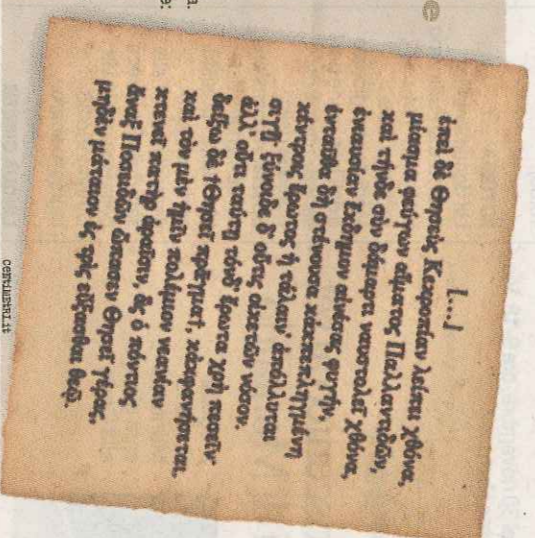 [...]
ἐπεὶ δὲ Θησεὺς Κεκροπίαν λείπει χθόνα,
μίασμα φεύγων αἵματος Παλλαντιδῶν,
καὶ τήνδε σὺν δάμαρτι ναυστολεῖ χθόνα,
ἐνιαυσίαν ἔκδημον αἰνέσας φυγήν,
ἐνταῦθα δὴ στένουσα κἀκπεπληγμένη
κέντροις ἔρωτος ἡ τάλαιν' ἀπόλλυται
σιγῇ· ξύνοιδε δ' οὔτις οἰκετῶν νόσον.
ἀλλ' οὔτι ταύτῃ τόνδ' ἔρωτα χρὴ πεσεῖν·
δείξω δὲ †Θησεῖ πρᾶγμα†, κἀκφανήσεται.
καὶ τὸν μὲν ἡμῖν πολέμιον νεανίαν
κτενεῖ πατὴρ ἀραῖσιν, ἃς ὁ πόντιος
ἄναξ Ποσειδῶν ὤπασεν Θησεῖ γέρας,
μηδὲν μάταιον ἐς τρὶς εὔξασθαι θεῷ.
CENTIMETRI.IT